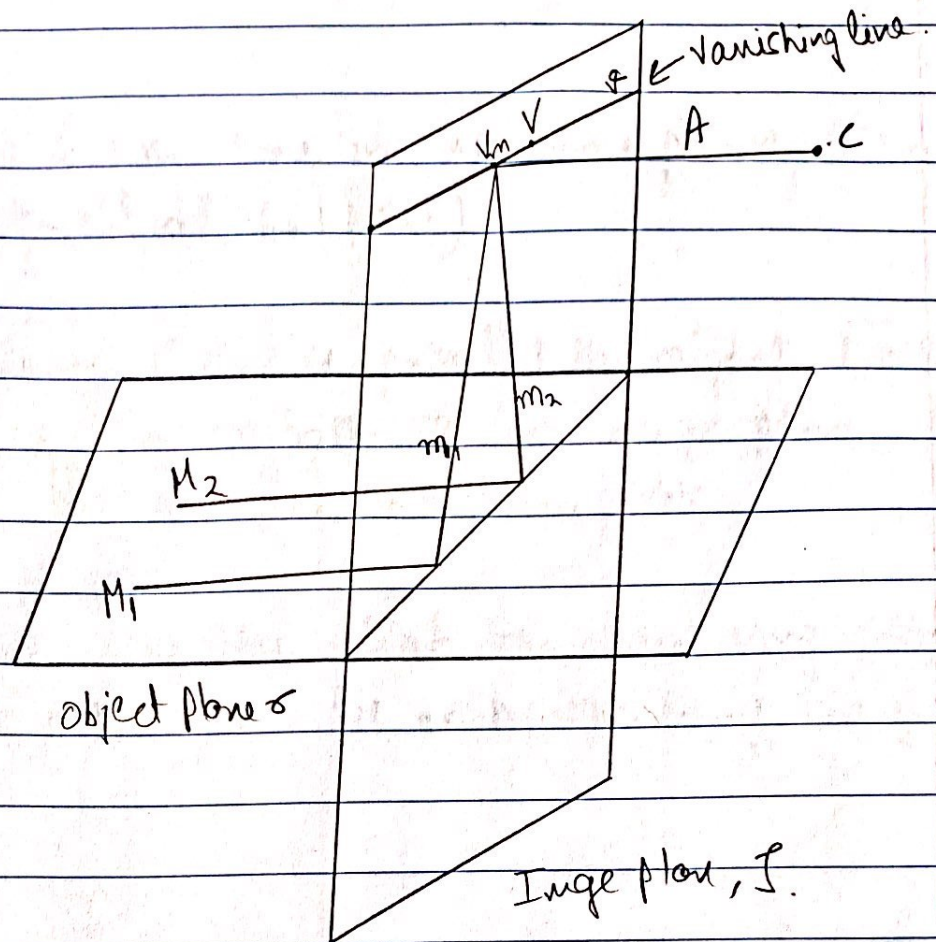 vanishing line.
V
Vm
A
. C
m2
m1
M2
M1
object plane σ
Imge plan, J.